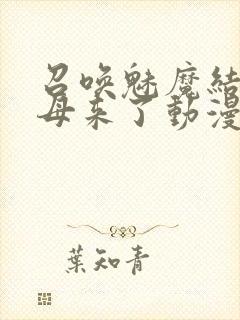 召喚魅魔結
母来了動漫
葉知青